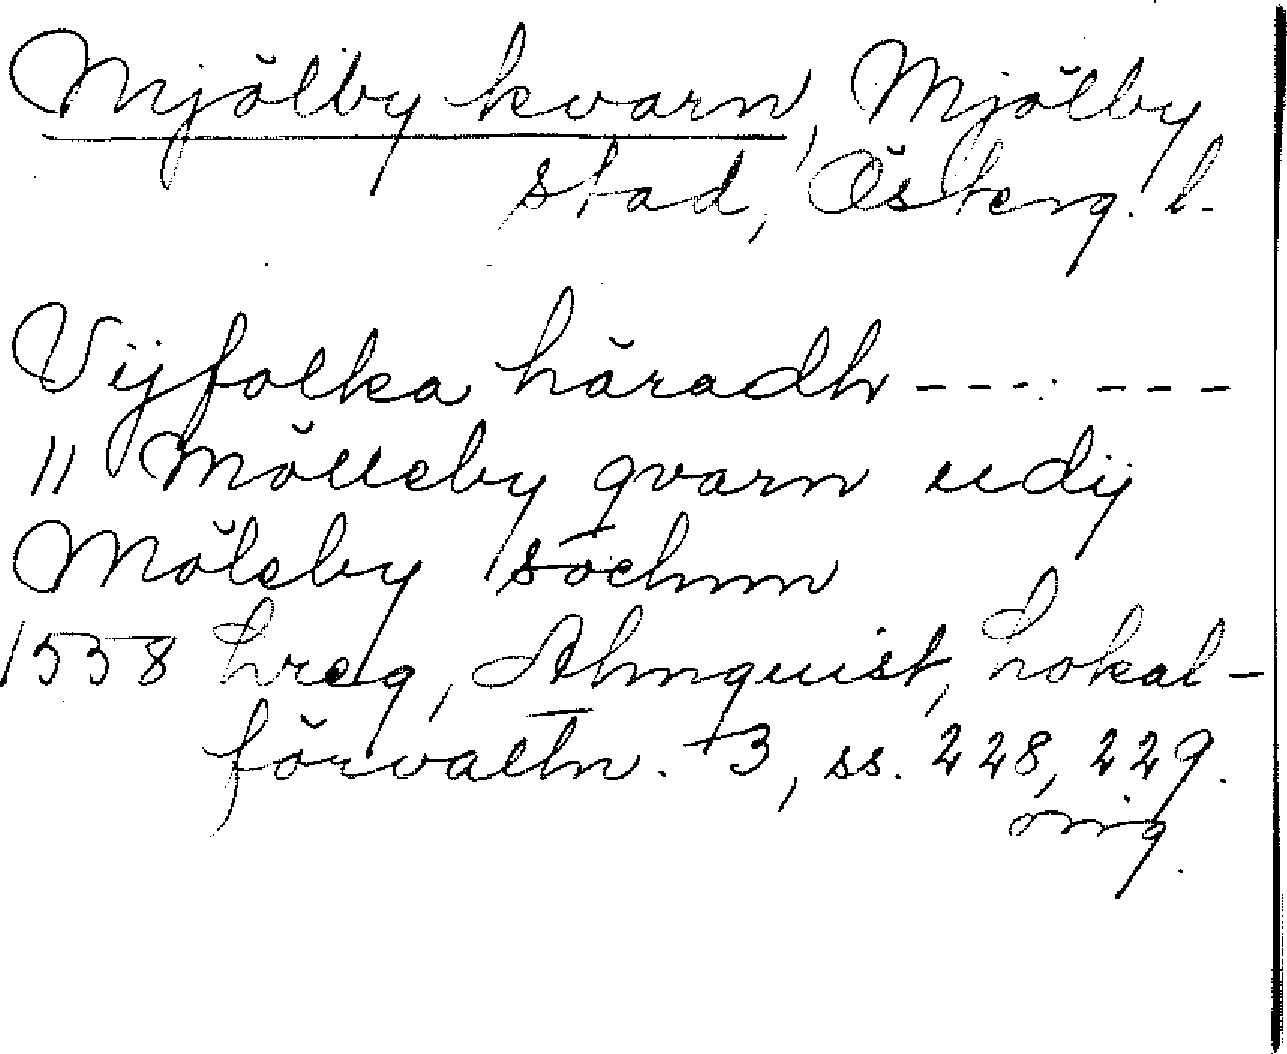 Mjölby kvarn, Mjölby
stad, Österg. l.
Vijfolka häradh --- ---
// Mölleby qvarn udij
Möleby sochnn
1538 Lreg, Almquist, Lokal-
förvaltn. 3, ss. 228, 229.
orig.